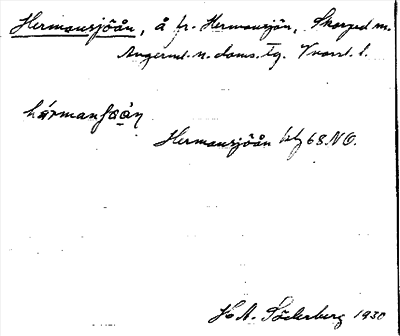 Hermansjöån, å fr. Hermansjön, Skorped sn.
Ångerml. n. doms. tg. Vnorrl. l.
hármanʃøån
Hermansjöån bl 68 NO.
H. A. Söderberg 1930